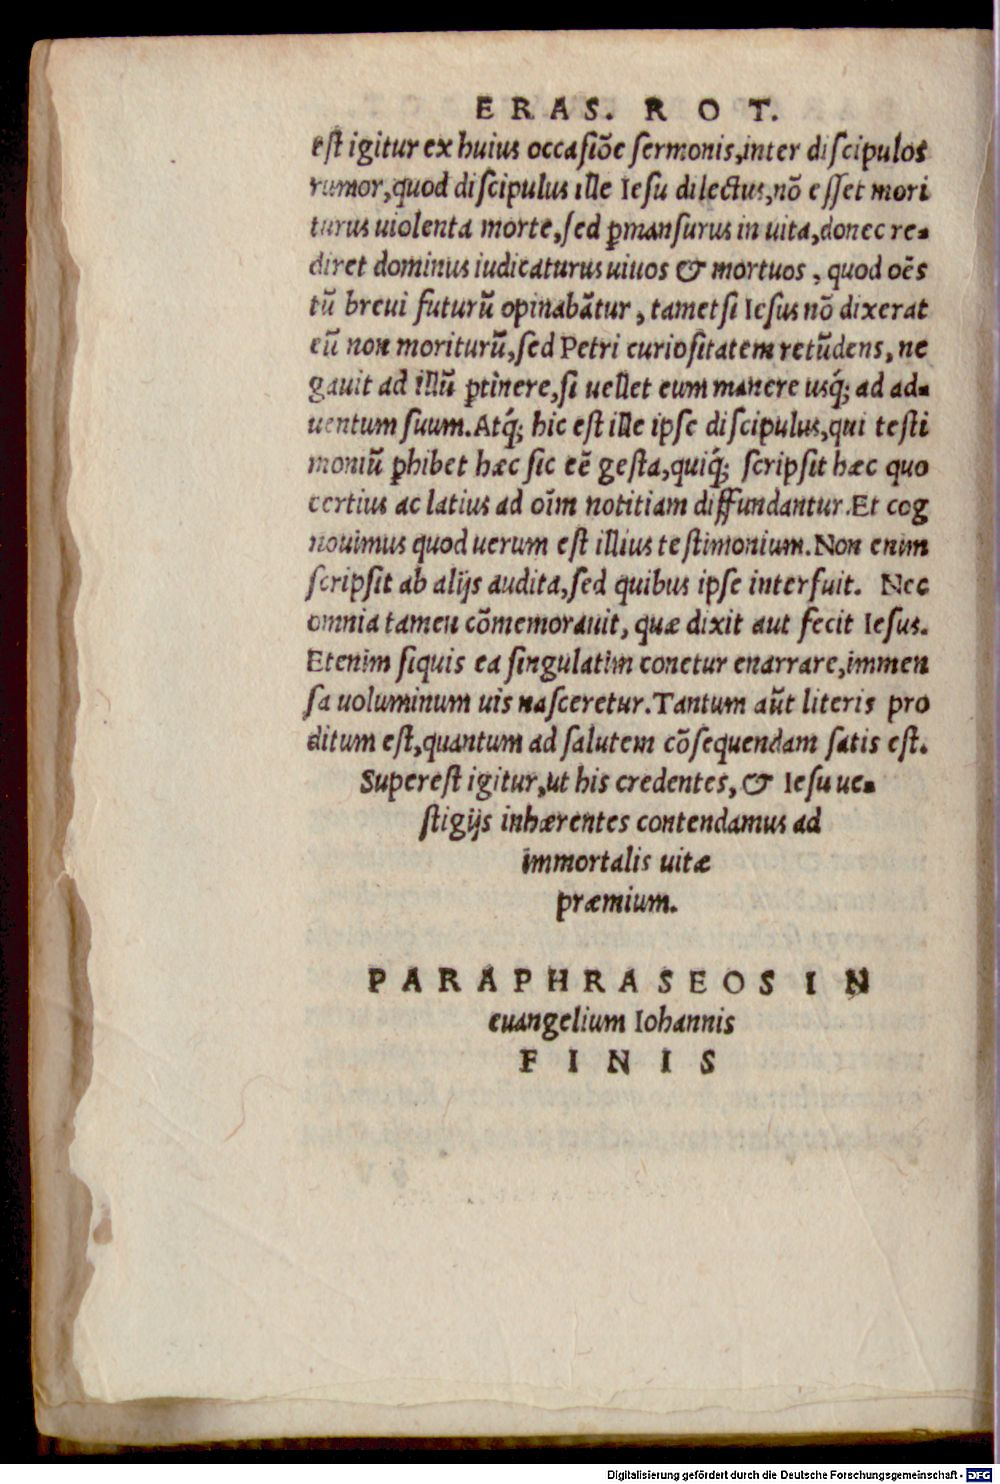 ERAS. ROT.
est igitur ex huius occasiõe sermonis, inter discipulos
rumor, quod discipulus ille Iesu dilectus, nõ esset mori
turus uiolenta morte, sed ꝑmansurus in uita, donec re-
diret dominus iudicaturus uiuos & mortuos, quod oẽs
tũ breui futurũ opinabãtur, tametsi Iesus nõ dixerat
eũ non moriturũ, sed Petri curiositatem retũdens, ne
gauit ad illũ ꝑtinere, si uellet eum manere usq́; ad ad-
uentum suum. Atq́; hic est ille ipse discipulus, qui testi
moniũ ꝑhibet hæc sic eẽ gesta, quiq́; scripsit hæc quo
certius ac latius ad oĩm notitiam diffundantur. Et cog
nouimus quod uerum est illius testimonium. Non enim
scripsit ab alijs audita, sed quibus ipse interfuit. Nec
omnia tamen cõmemorauit, quæ dixit aut fecit Iesus.
Etenim siquis ea singulatim conetur enarrare, immen
sa uoluminum uis nasceretur. Tantum aũt literis pro
ditum est, quantum ad salutem cõsequendam satis est.
Superest igitur, ut his credentes, & Iesu ue-
stigijs inhærentes contendamus ad
immortalis uitæ
præmium.
PARAPHRASEOS IN
euangelium Iohannis
FINIS
Digitalisierung gefördert durch die Deutsche Forschungsgemeinschaft - DFG